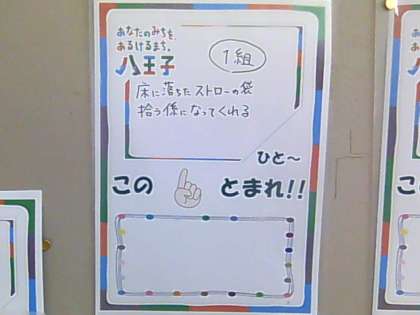 あなたのみちを、
あるけるまち。
八王子
1組
床に落ちたストローの袋
拾う係になってくれる
ひと〜
この とまれ!!